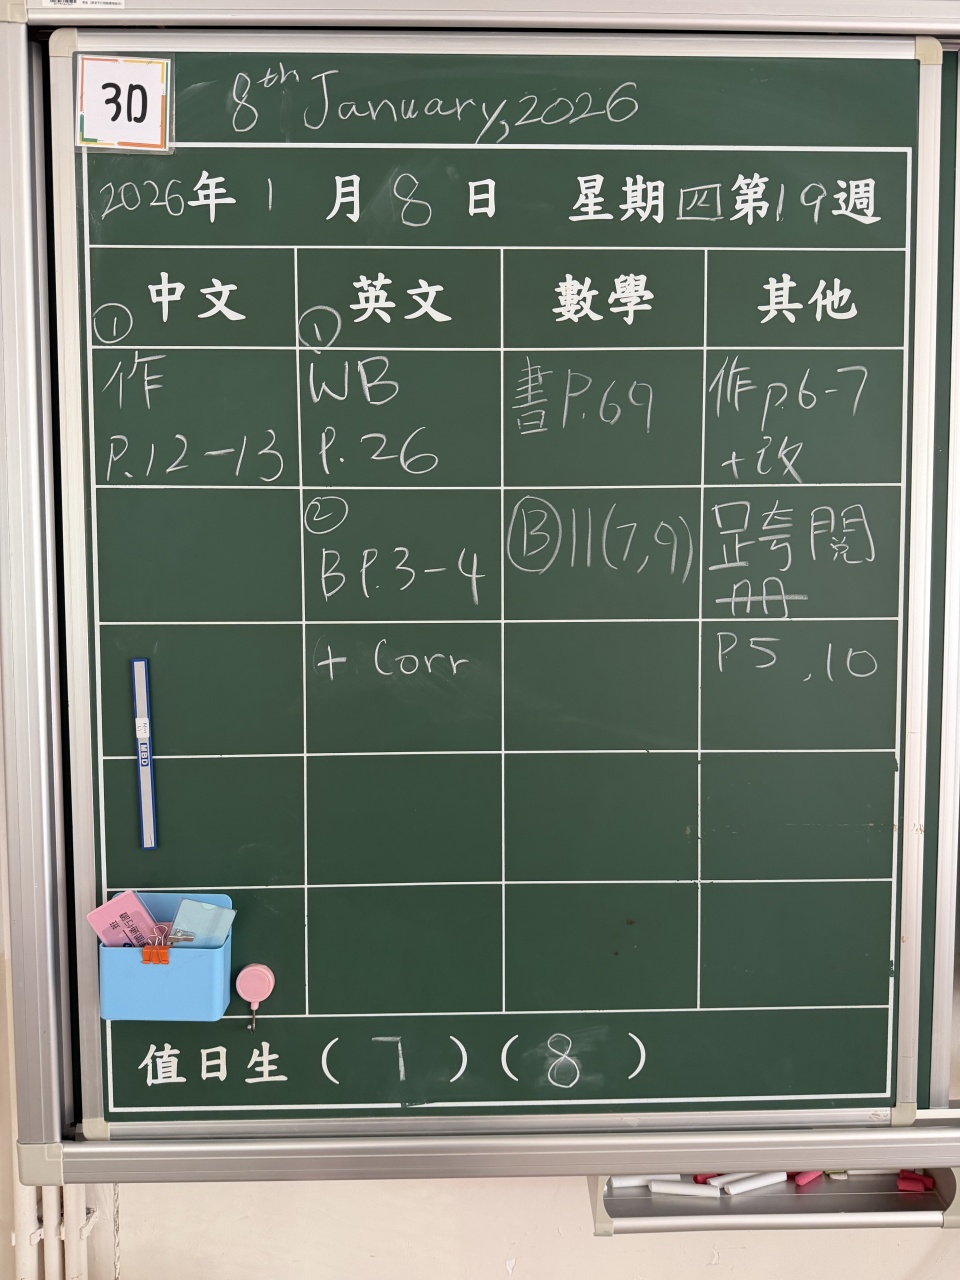 3D
8th January, 2026
2026年 1 月 8 日 星期四第19週
中文 英文 數學 其他
① 作
P.12-13
① WB
P.26
書P.69
作p.6-7
+改
② BP.3-4
Ⓑ11(7,9)
跨閱
冊
+ Corr
P5,10
MBD
值日生 ( 7 ) ( 8 )